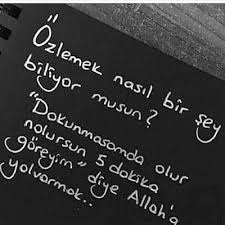 "Özlemek nasıl bir şey
biliyor musun?
"Dokunmasamda olur
nolursun 5 dakika
göreyim" diye Allah'a
yalvarmak..